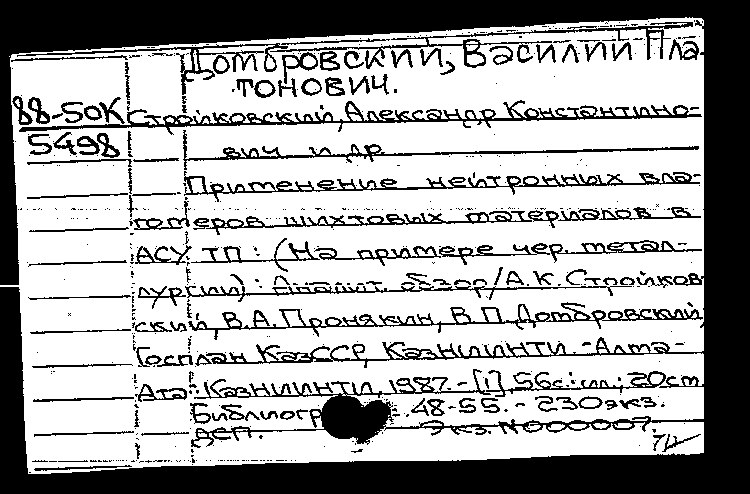 Домбровский, Василий Пла-
тонович.
88-50К Стройковский, Александр Константино-
5498 вич и др
Применение нейтронных вла-
гомеров шихтовых материалов в
АСУ ТП: (На примере чер. метал-
лургии): Аналит. обзор/А.К. Стройков-
ский, В.А. Пронякин, В.П. Домбровский;
Госплан КазССР, КазНИИНТИ. -Алма-
Ата: КазНИИНТИ, 1987. - [1], 56с.: ил.; 20см
Библиогр 48-55. - 230экз.
ДСП. Экз. N000007.